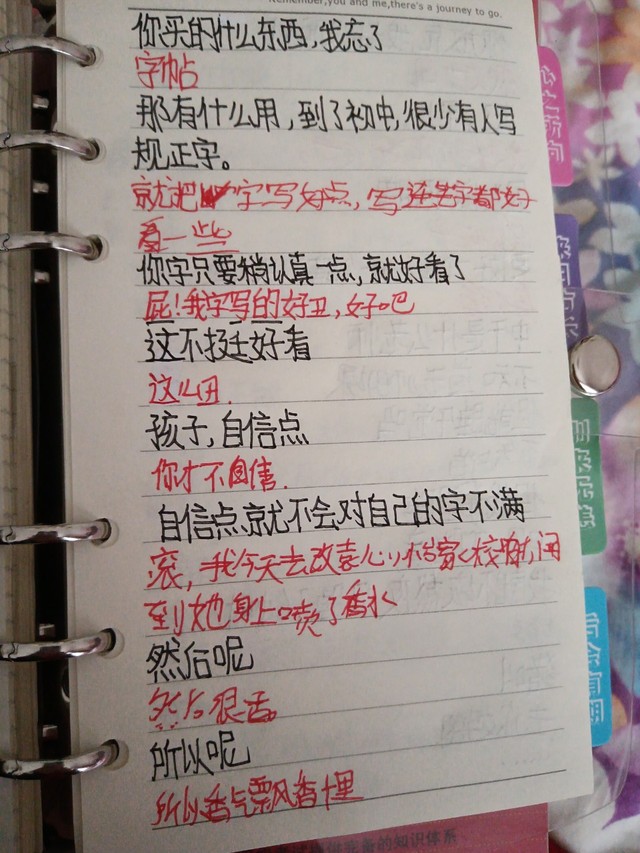 Remember, you and me, there's a journey to go.
你买的什么东西，我忘了
字帖
那有什么用，到了初中，很少有人写
规正字。
就把字写好点，写连笔字都好
看一些
你字只要稍认真一点，就好看了
屁！我字写的好丑，好吧
这不挺好看
这么丑．
孩子，自信点
你才不自信．
自信点就不会对自己的字不满
滚，我今天去改袁心小
到她身上喷了香水
然后呢
然后很香。
所以呢
所以香气飘风香十里
心之所向
的知识体系